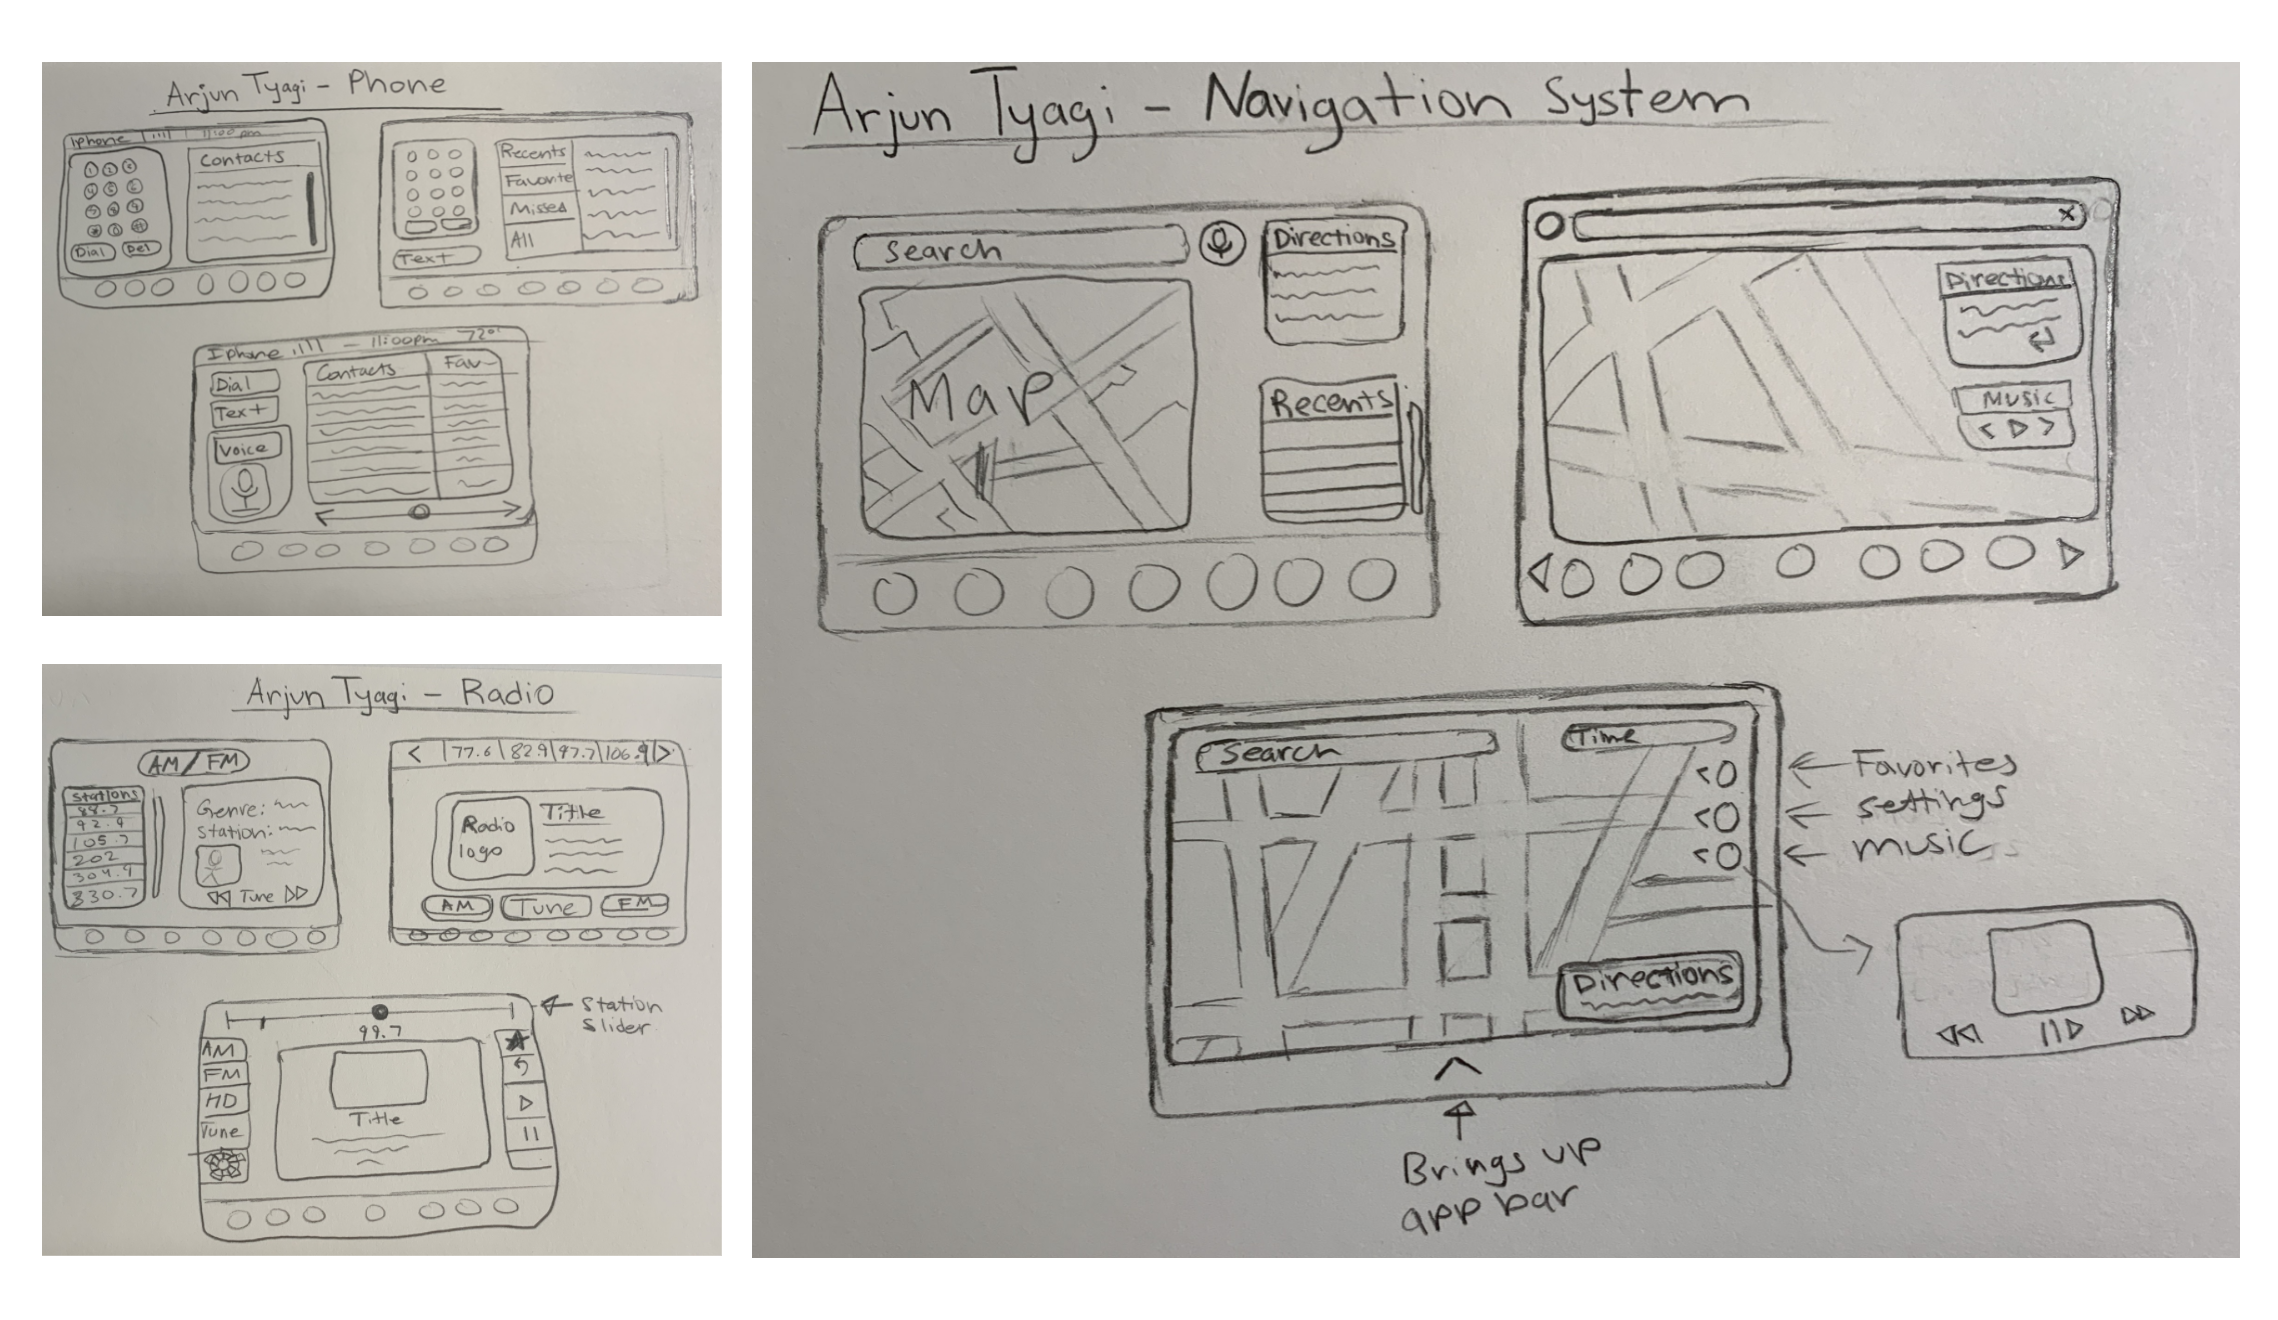 Arjun Tyagi - Phone
Iphone 11:00 pm
1 2 3
4 5 6
7 8 9
* 0 #
Dial Del
Contacts
Recents
Favorite
Missed
All
Text
Iphone - 11:00pm 72°
Dial
Text
Voice
Contacts
Fav
Arjun Tyagi - Radio
AM/FM
Stations
88.7
92.9
105.7
202
304.9
830.7
Genre:
Station:
Tune
< |77.6|82.9|97.7|106.9|>
Radio
logo
Title
AM
Tune
FM
Station
slider
99.7
AM
FM
HD
Tune
Title
Arjun Tyagi - Navigation System
Search
Directions
Map
Recents
X
Directions
Music
< >
Search
Time
<
<
<
Favorites
settings
music
Directions
Brings up
app bar